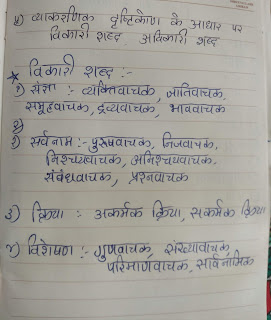 ४) व्याकरणीक दृष्टिकोण के आधार पर
विकारी शब्द अविकारी शब्द
* विकारी शब्द :-
१) संज्ञा :- व्यक्तिवाचक, जातिवाचक,
समूहवाचक, द्रव्यवाचक, भाववाचक
२)
१) सर्वनाम :- पुरुषवाचक, निजवाचक,
निश्चयवाचक, अनिश्चयवाचक,
संबंधवाचक, प्रश्नवाचक
३) क्रिया :- अकर्मक क्रिया, सकर्मक क्रिया
४) विशेषण :- गुणवाचक, संख्यावाचक
परिमाणवाचक, सार्वनामिक